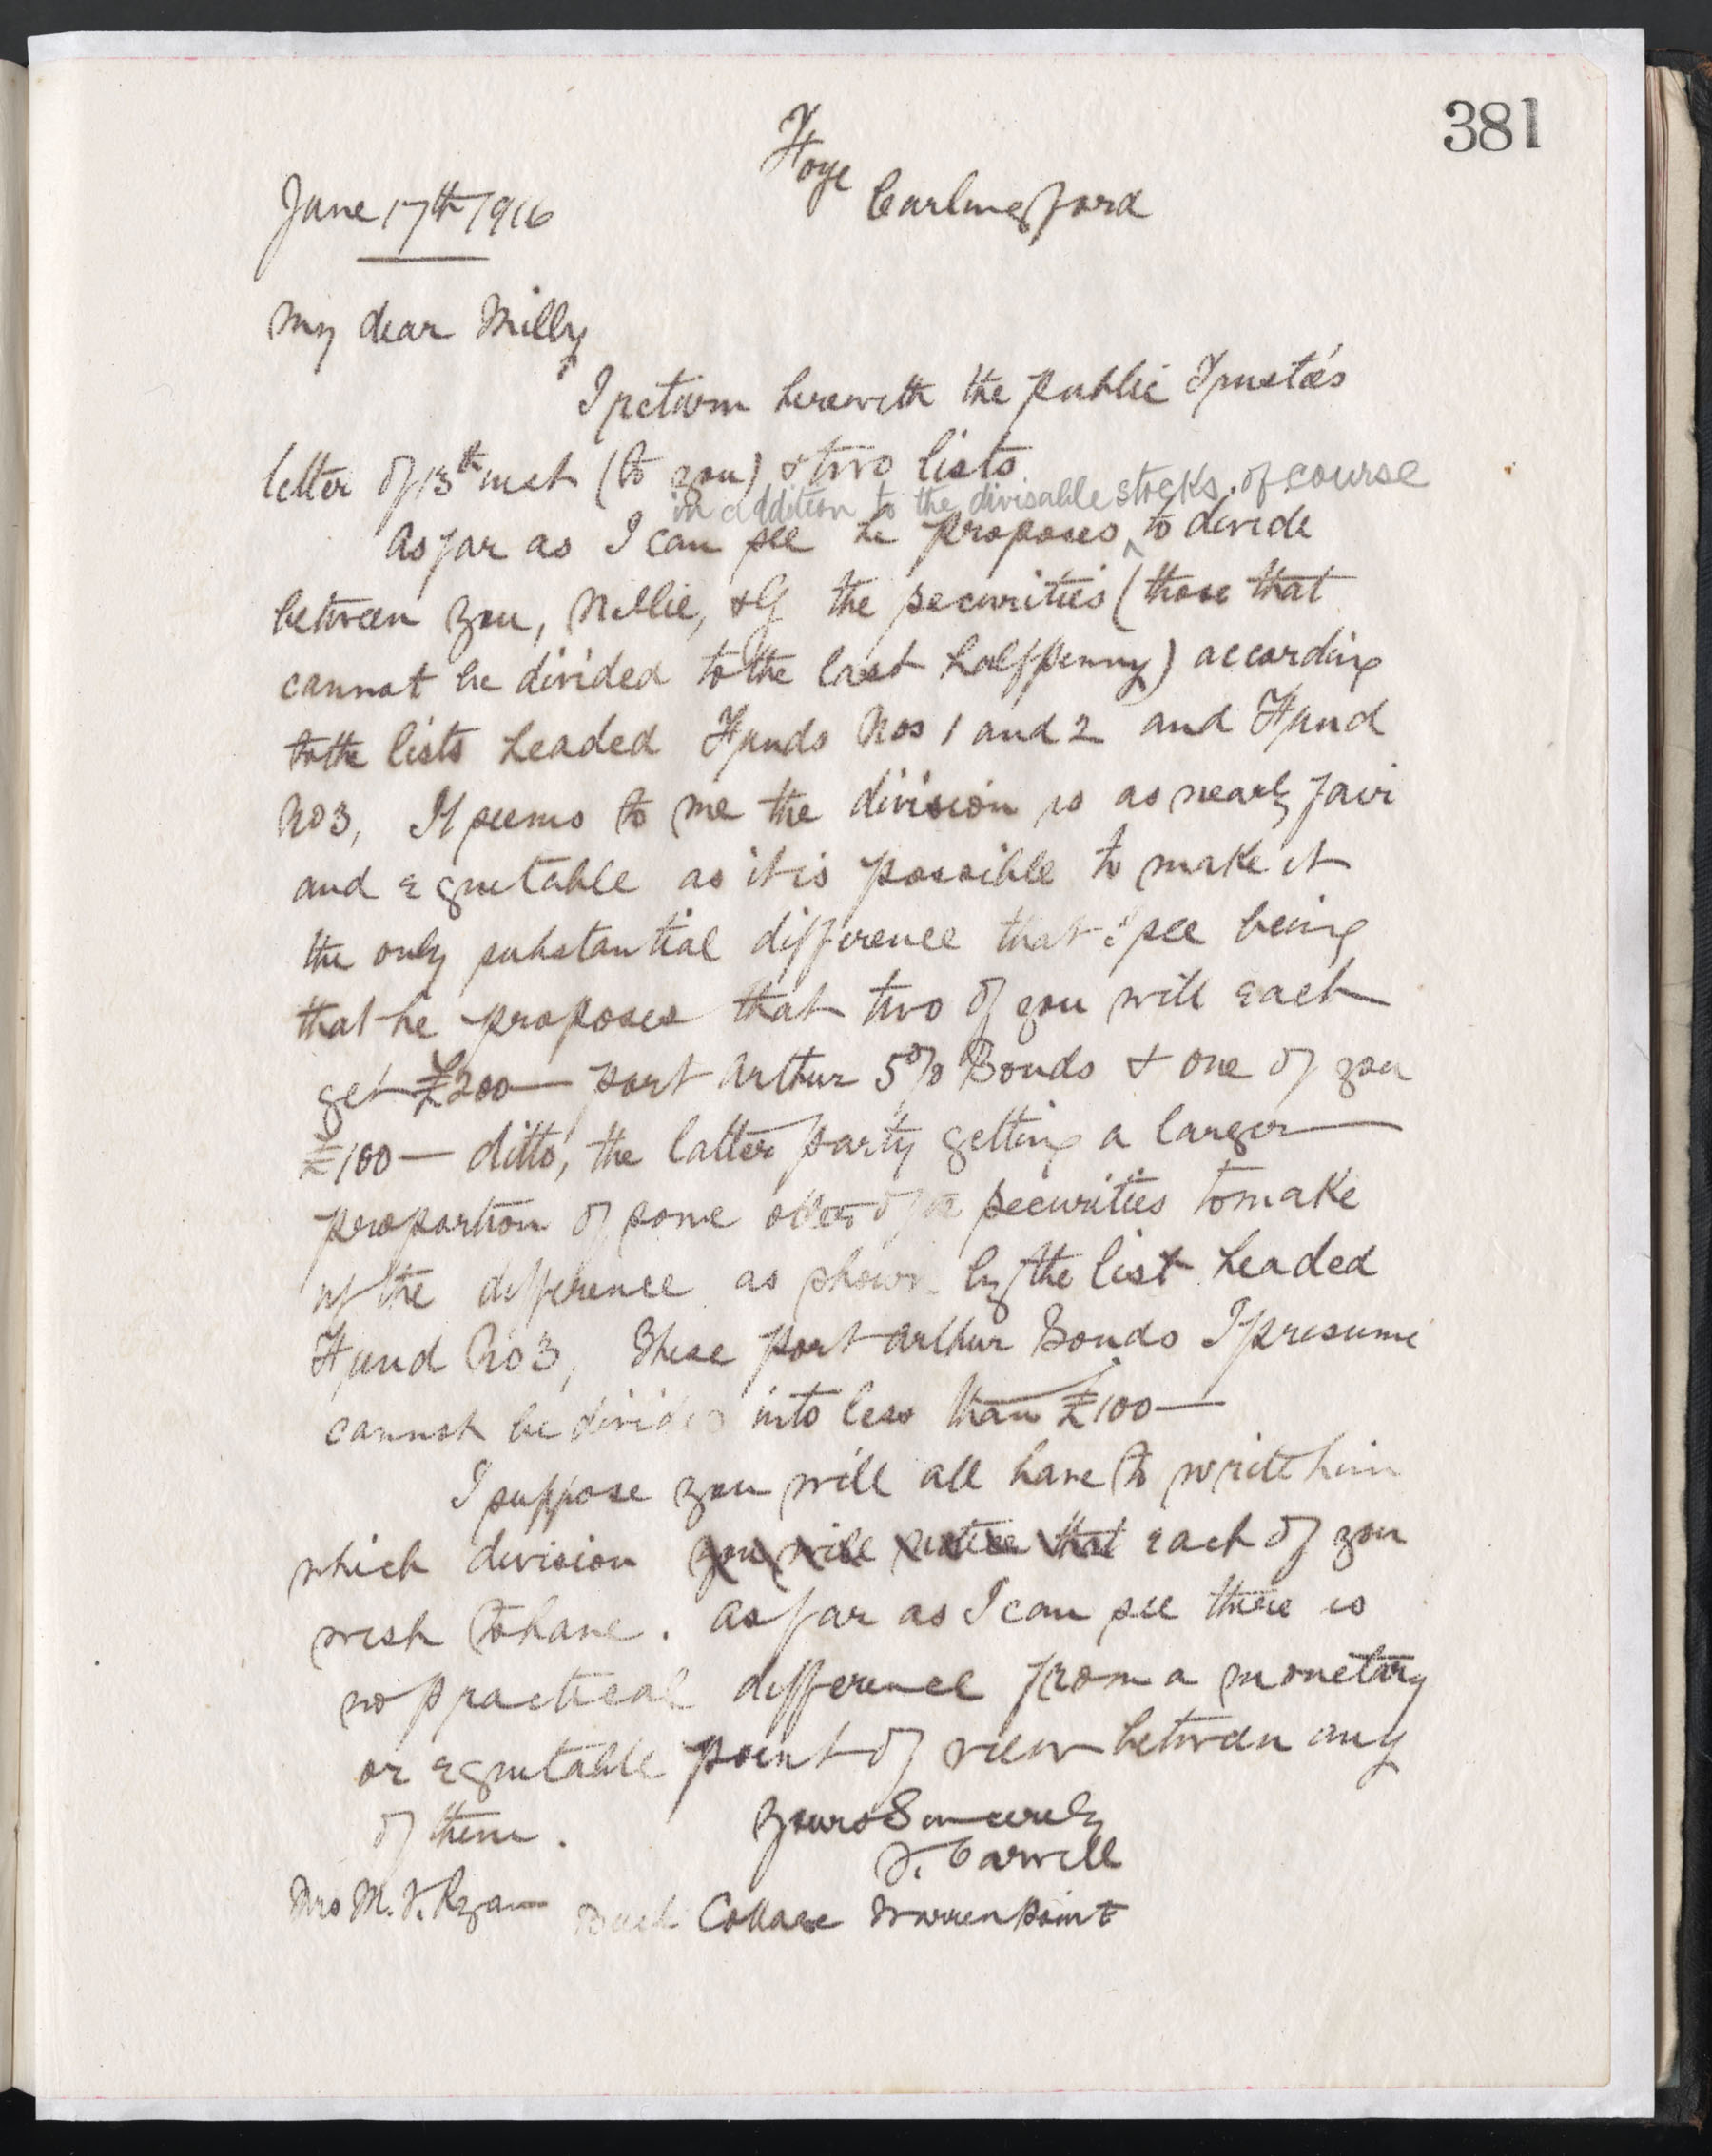 381
Foye
Carlingford
June 17th 1916
My dear Milly
I return herewith the public Trustee's
letter of 13th inst (to you) & two lists.
in addition to the divisable stocks. of course
As far as I can see he proposes ^ to divide
between you, Nellie, & G the securities (those that
cannot be divided to the last halfpenny) according
to the lists headed Funds Nos 1 and 2 and Fund
No 3, It seems to me the division is as nearly fair
and equitable as it is possible to make it
the only substantial difference that I see being
that he proposes that two of you will each
get £200 — port Arthur 5% Bonds & one of you
£100 — ditto, the latter party getting a larger
proportion of some other of the securities to make
up the difference as shown by the list headed
Fund No 3, These port Arthur Bonds I presume
cannot be divided into less than £100 —
I suppose you will all have to write him
which division you will notice that each of you
wish to have. As far as I can see there is
no practical difference from a monetary
or equitable point of view between any
of them.
Yours Sincerely
F. Carvill
Mrs M. J. Ryan Cottage Warrenpoint